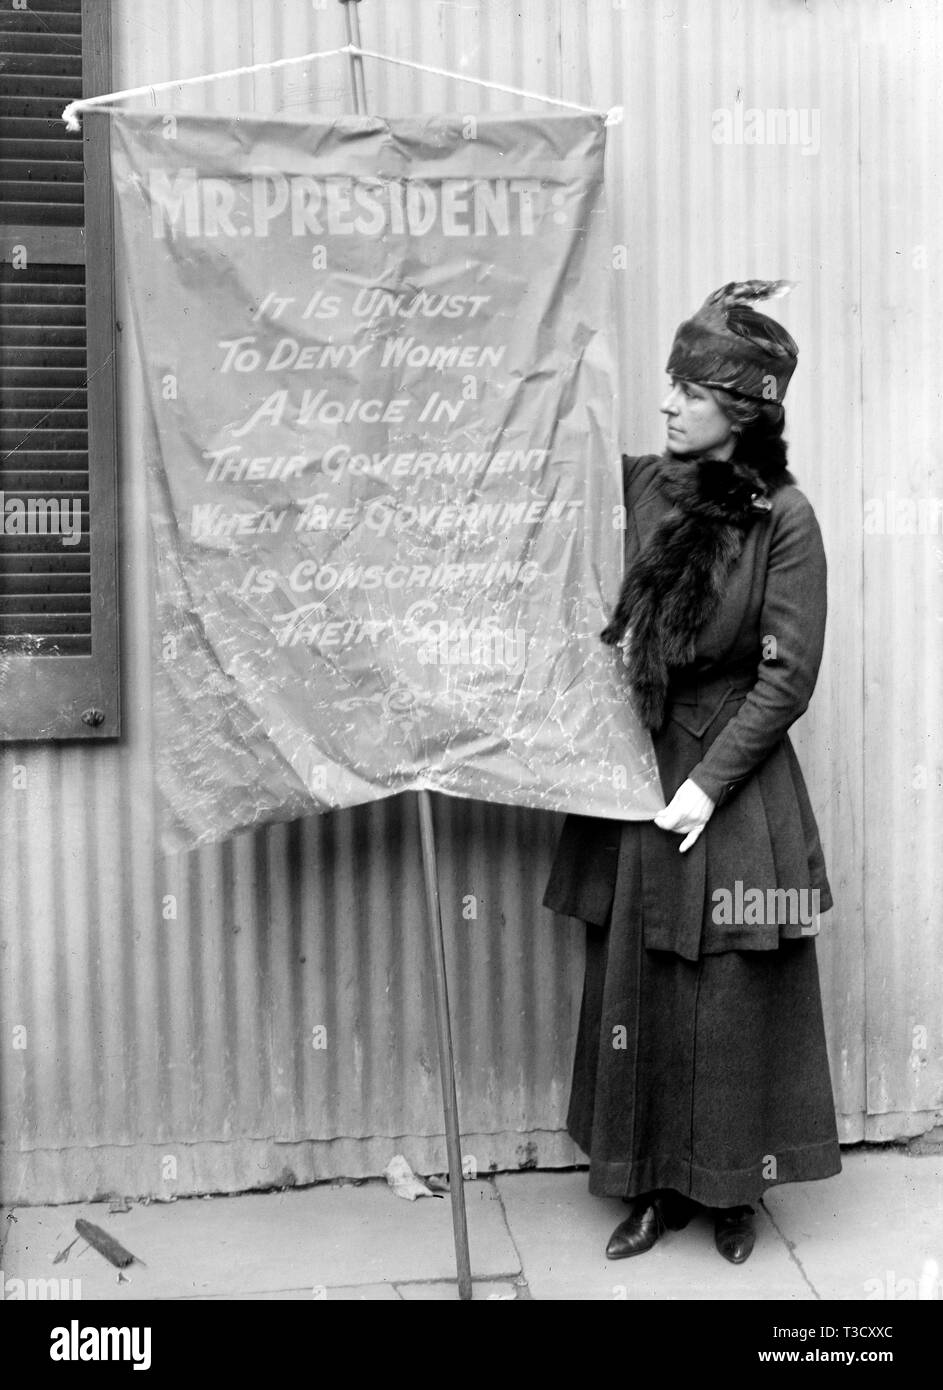 MR. PRESIDENT:
IT IS UNJUST
TO DENY WOMEN
A VOICE IN
THEIR GOVERNMENT
WHEN THE GOVERNMENT
IS CONSCRIPTING
THEIR SONS.
alamy
alamy
alamy
alamy
alamy
alamy
Image ID: T3CXXC
www.alamy.com